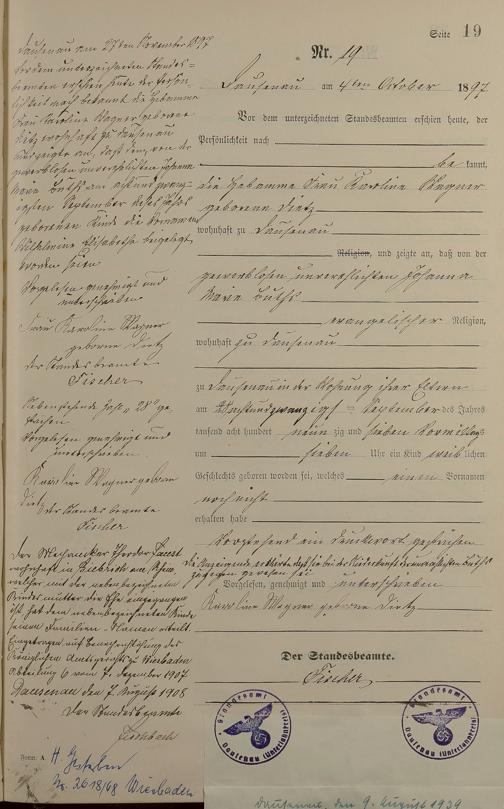 Seite 19
Nr. 19
Dausenau am 4ten October 1897
Vor dem unterzeichneten Standesbeamten erschien heute, der
Persönlichkeit nach
be kannt,
die Hebamme Frau Karoline Wagner
geborene Dietz
wohnhaft zu Dausenau
Religion, und zeigte an, daß von der
gewerblosen unverehelichten Johanna
evangelischer Religion,
wohnhaft zu Dausenau
zu Dausenau in der Wohnung ihrer Eltern
am achtundzwanzigsten September des Jahres
tausend acht hundert neun zig und sieben Vormittags
um sieben Uhr ein Kind weib lichen
Geschlechts geboren worden sei, welches einen Vornamen
noch nicht
erhalten habe
Vorstehend ein Druckwort gestrichen
die Anzeigende erklärte, daß sie bei der Niederkunft der
zugegen gewesen sei
Vorgelesen, genehmigt und unterschrieben
Karoline Wagner geborne Dietz
Der Standesbeamte.
Fischer
Dausenau am 27ten November 1897
Vor dem unterzeichneten Standes-
beamten erschien heute der Persön-
lichkeit nach bekannt die Hebamme
Frau Karoline Wagner geborene
Dietz wohnhaft zu Dausenau
und zeigte an, daß dem von der
gewerblosen unverehelichten Johanna
am achtundzwan-
zigsten September dieses Jahres
geborenen Kinde die Vornamen
Wilhelmine Elisabethe beigelegt
worden seien
Vorgelesen genehmigt und
unterschrieben
Frau Karoline Wagner
geborne Dietz
der Standesbeamte
Fischer
Vorgelesen genehmigt und
unterschrieben
Karoline Wagner geborne
Dietz
der Standesbeamte
Fischer
Der Mechaniker Theodor Faust
wohnhaft in Biebrich am Rhein
welcher mit der nebenbezeichneten
Kindesmutter die Ehe eingegangen
ist, hat dem nebenbezeichneten Kinde
seinen Familien-Namen erteilt.
Eingetragen auf Benachrichtigung des
Königlichen Amtsgerichts zu Wiesbaden
Abteilung 6 vom 7. Dezember 1907
Dausenau den 7. August 1908
Der Standesbeamte
Form. A
Gestorben
Nr. 2618/68 Wiesbaden
Standesamt
Dausenau (Unterlahnkreis)
Standesamt
Dausenau (Unterlahnkreis)
Dausenau, den 9. August 1939